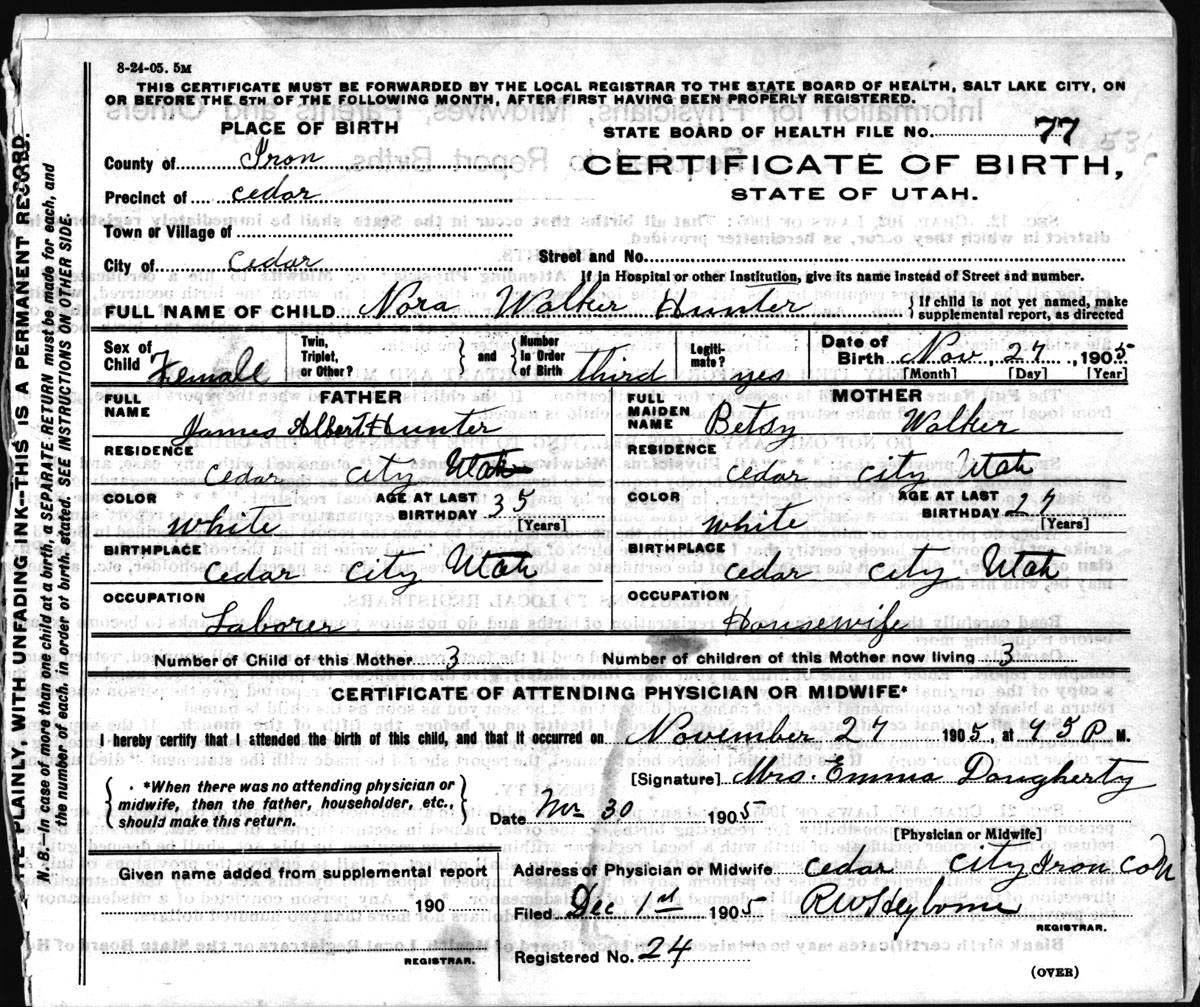 8-24-05. 5M
THIS CERTIFICATE MUST BE FORWARDED BY THE LOCAL REGISTRAR TO THE STATE BOARD OF HEALTH, SALT LAKE CITY, ON
OR BEFORE THE 5TH OF THE FOLLOWING MONTH, AFTER FIRST HAVING BEEN PROPERLY REGISTERED.
PLACE OF BIRTH
STATE BOARD OF HEALTH FILE No. 77
County of Iron
CERTIFICATE OF BIRTH,
Precinct of cedar
STATE OF UTAH.
Town or Village of
City of cedar Street and No.
If in Hospital or other Institution, give its name instead of Street and number.
FULL NAME OF CHILD Nora Walker Hunter { If child is not yet named, make supplemental report, as directed
Sex of Child Female Twin, Triplet, or Other? { } and { Number In Order of Birth third Legiti-mate? yes Date of Birth Nov 27, 1905
[Month] [Day] [Year]
FULL NAME FATHER James Albert Hunter
FULL MAIDEN NAME MOTHER Betsy Walker
RESIDENCE cedar city Utah
RESIDENCE cedar city Utah
COLOR White AGE AT LAST BIRTHDAY 35 [Years]
COLOR White AGE AT LAST BIRTHDAY 27 [Years]
BIRTHPLACE cedar city Utah
BIRTHPLACE cedar city Utah
OCCUPATION Laborer
OCCUPATION Housewife
Number of Child of this Mother 3 Number of children of this Mother now living 3
CERTIFICATE OF ATTENDING PHYSICIAN OR MIDWIFE*
I hereby certify that I attended the birth of this child, and that it occurred on November 27 1905, at P. M.
[Signature] Mrs. Emma Daugherty
{ *When there was no attending physician or
midwife, then the father, householder, etc.,
should make this return. }
Date 30 1905
[Physician or Midwife]
Given name added from supplemental report
Address of Physician or Midwife cedar city Iron co
190
Filed Dec 1st 1905
REGISTRAR.
REGISTRAR.
Registered No. 24
(OVER)
PLAINLY, WITH UNFADING INK--THIS IS A PERMANENT RECORD.
N. B.--In case of more than one child at a birth, a SEPARATE RETURN must be made for each, and
the number of each, in order of birth, stated. SEE INSTRUCTIONS ON OTHER SIDE.